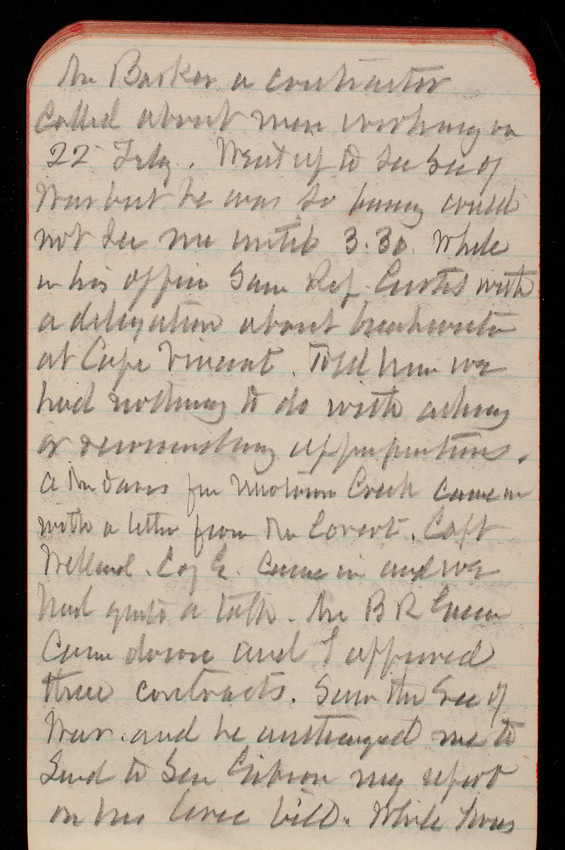 Mr Barker a contractor
called about men working on
22 July. Went up to see Sec of
War but he was so busy could
not see me until 3.30. While
in his office saw Rep. Curtis with
a delegation about breakwater
at Cape Vincent. Told him we
had nothing to do with asking
or recommending appropriations.
A Mr Davis from Newtown Creek came in
with a letter from Mr Covert. Capt
Willard. Eng. came in and we
had quite a talk. Mr B R Green
came down and I approved
three contracts. Saw the Sec of
War and he authorized me to
send to Gen Gibson my report
on his levee bill. While I was